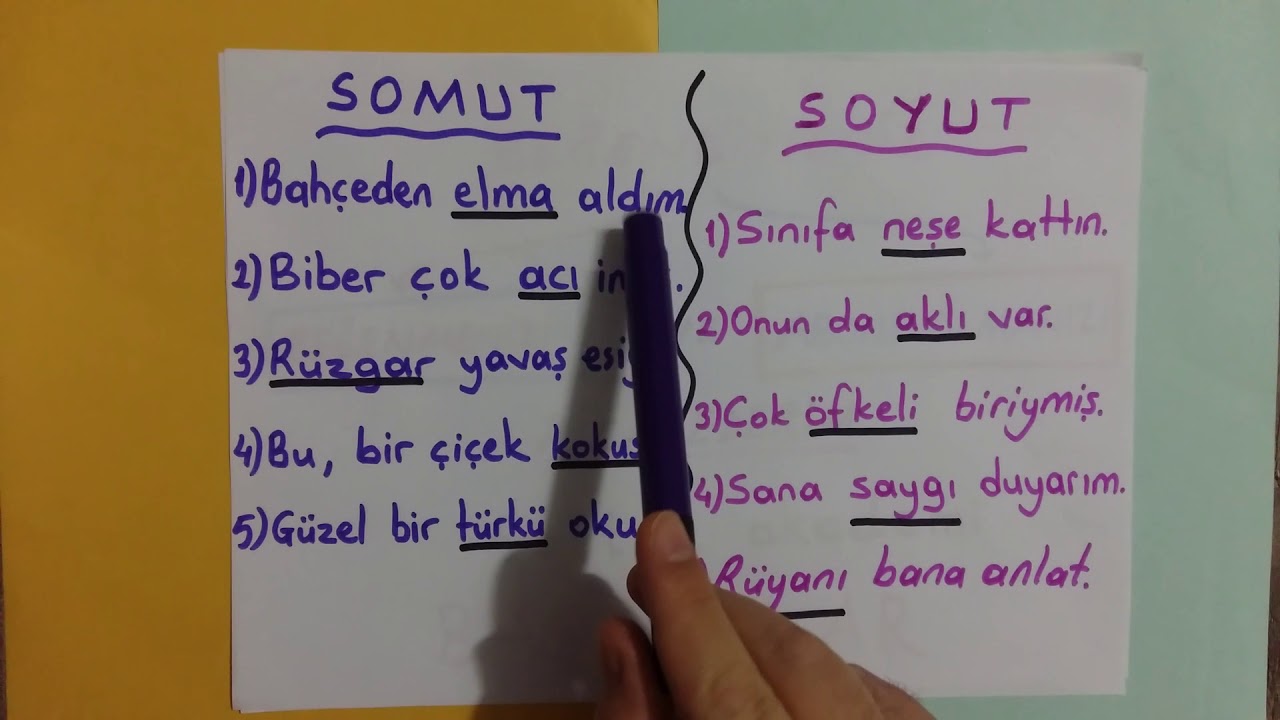 SOMUT
1)Bahçeden elma aldım.
2)Biber çok acı
3)Rüzgar yavaş
4)Bu, bir çiçek
5)Güzel bir türkü
SOYUT
1)Sınıfa neşe kattın.
2)Onun da aklı var.
3)Çok öfkeli biriymiş.
4)Sana saygı duyarım.
Rüyanı bana anlat.